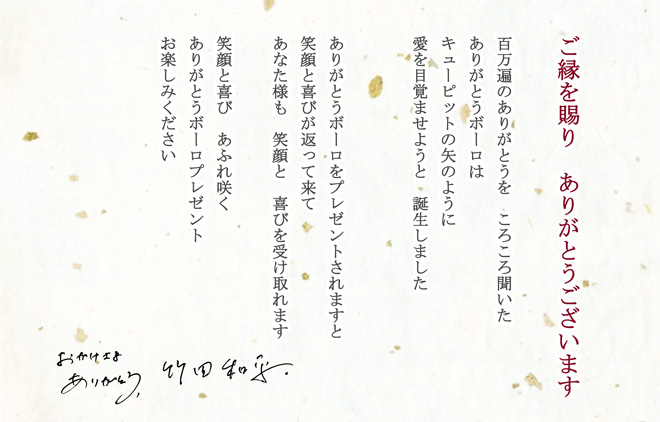 ご縁を賜り　ありがとうございます
百万遍のありがとうを　ころころ聞いた
ありがとうボーロは
キューピットの矢のように
愛を目覚ませようと　誕生しました
ありがとうボーロをプレゼントされますと
笑顔と喜びが返って来て
あなた様も　笑顔と　喜びを受け取れます
笑顔と喜び　あふれ咲く
ありがとうボーロプレゼント
お楽しみください
おかげさま
ありがとう、
竹田和平.